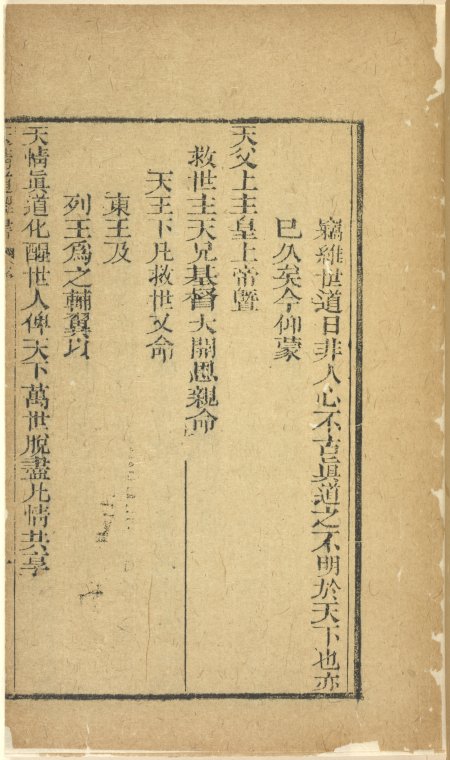 竊維世道日非人心不古眞道之不明於天下也亦
已久矣今仰蒙
天父上主皇上帝曁
救世主天兄基督大開恩親命
天王下凡救世又命
東王及
列王爲之輔翼以
天情眞道化醒世人俾天下萬世脫盡凡情共學
天情道理書